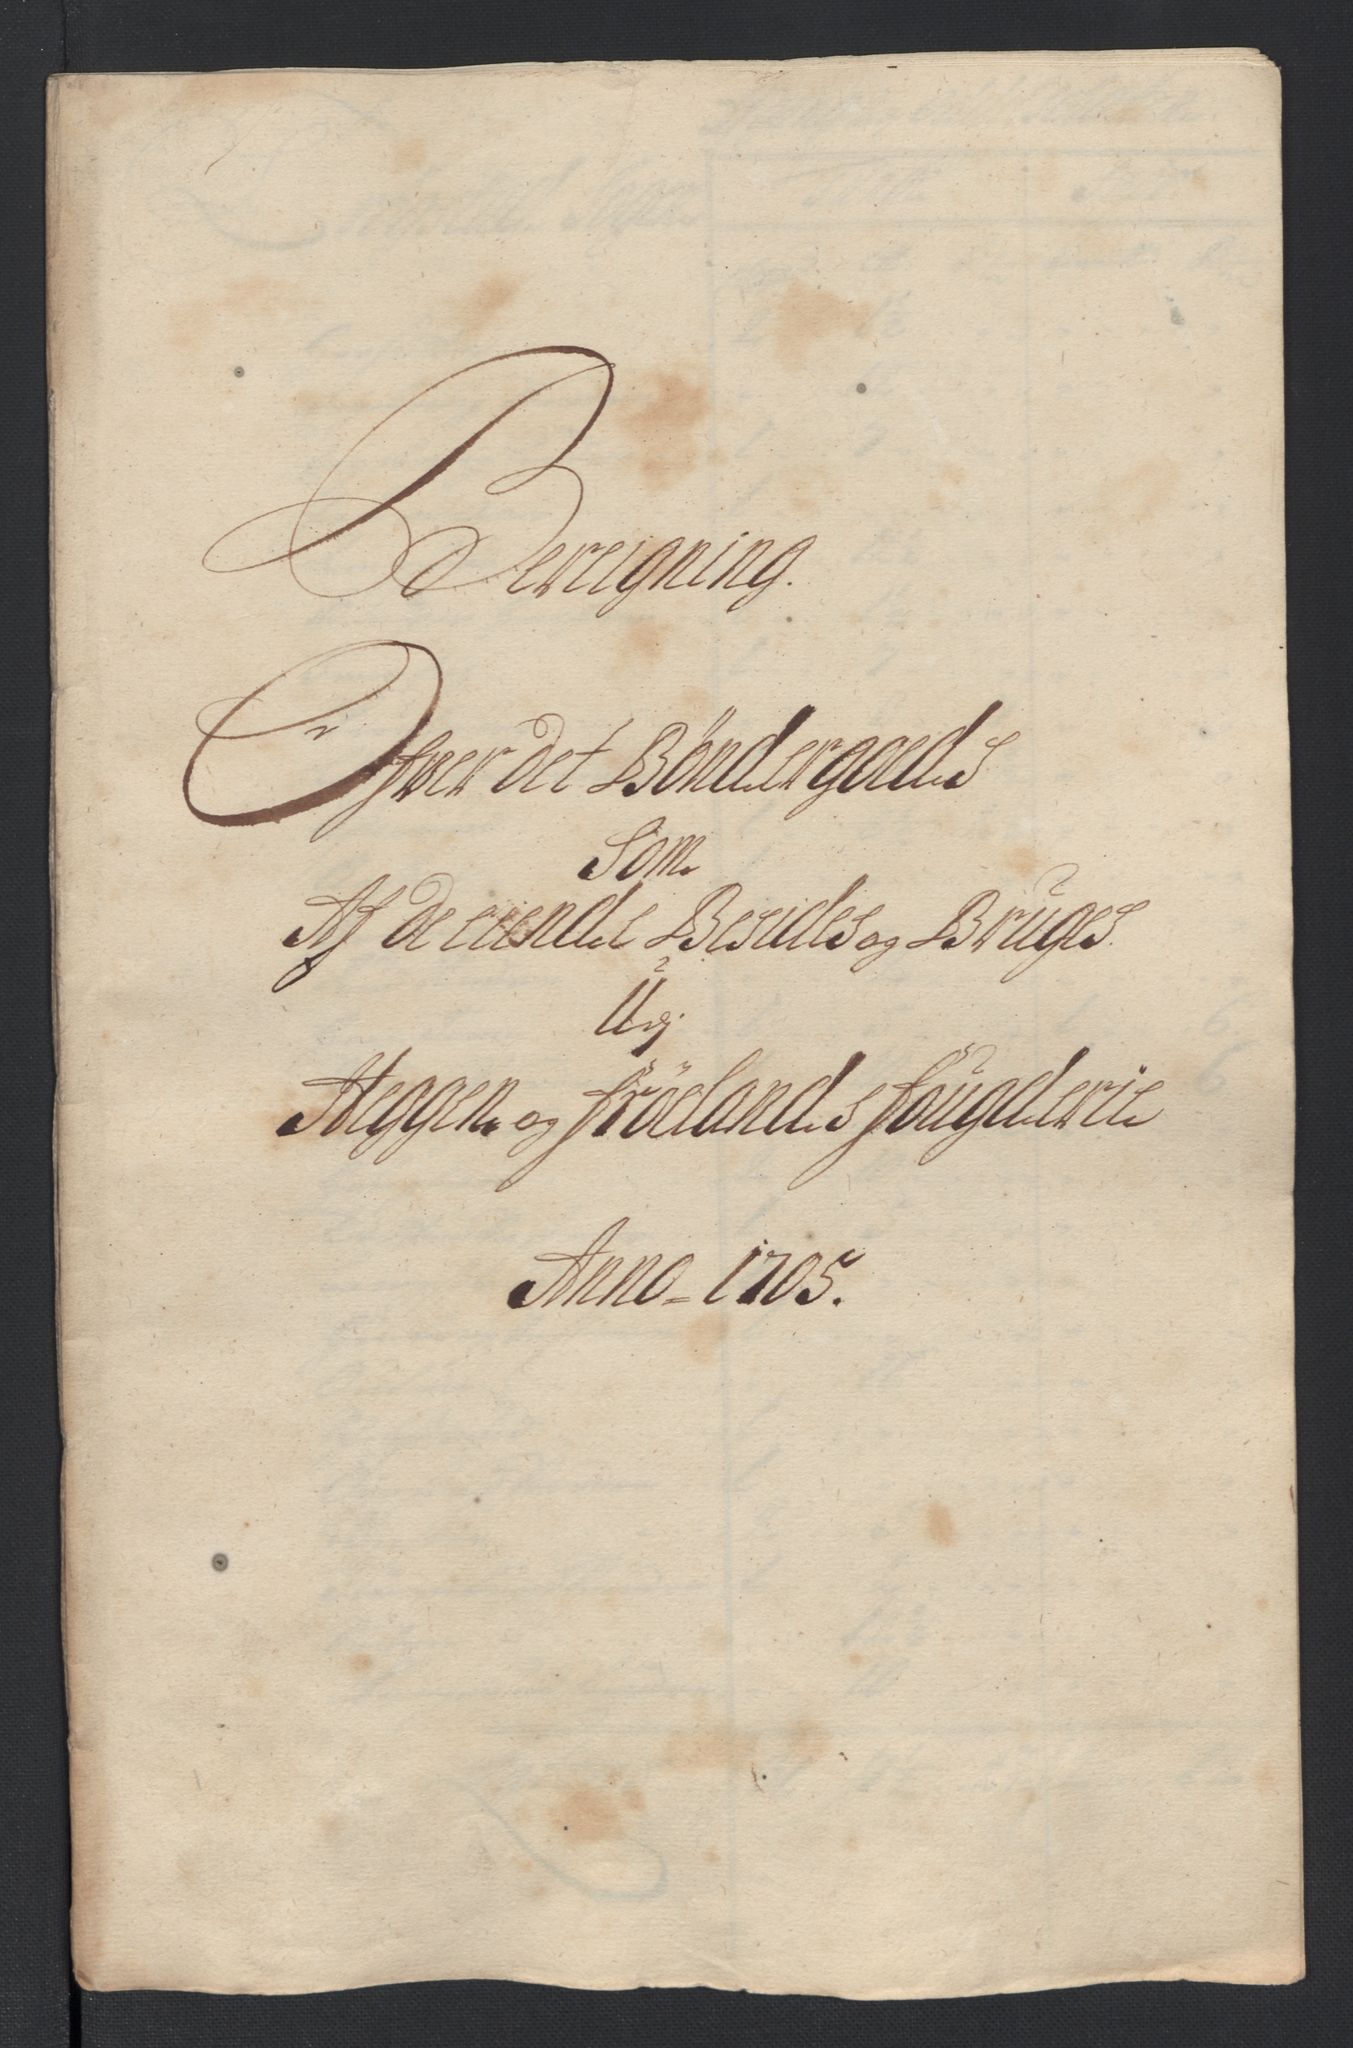 Bereigning.
Ofver det Bøndergoeds
Som
Af de eiende Besides og Bruges.
Udj
Heggen og frölands fougderie
Anno- 1705.